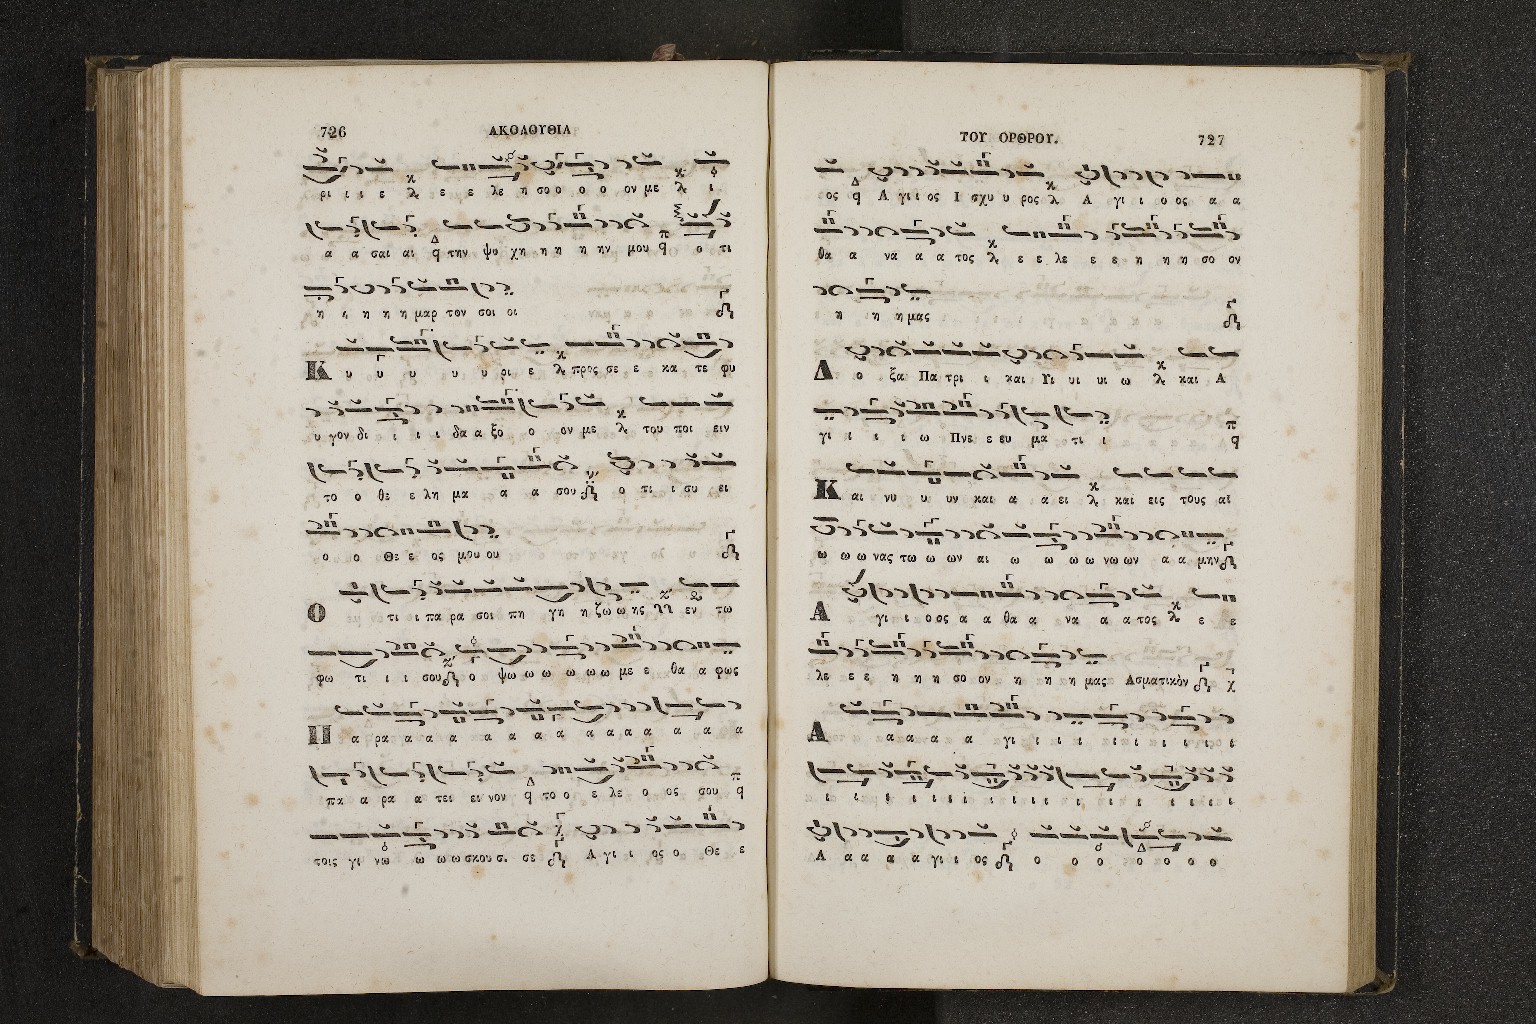 726 ΑΚΟΛΟΥΘΙΑ
ρι ι ι ε ε ε λε η σο ο ο ο ον με ι
α α σαι αι την ψυ χη η η η ην μου ο τι
η η η η η μαρ τον σοι οι
Κ υ υ υ υ ρι ε προς σε ε κα τε φυ
υ γον δι ι ι ι δα α ξο ο ον με του ποι ειν
το ο θε ε λη μα α α σου ο τι ι συ ει
ο ο Θε ε ος μου ου
Ο τι ι πα ρα σοι πη γη η ζω ω ης εν τω
φω τι ι ι σου ο ψω ω ω ω ω ω με ε θα α φως
Π α ρα α α α α α α α α α α α α α α
πα α ρα α τει ει νον το ο ε λε ο ος σου
τοις γι νω ω ω ω σκου σι σε Α γι ι ος ο Θε ε
ΤΟΥ ΟΡΘΡΟΥ. 727
ος Α γι ι ος Ι σχυ υ ρος Α γι ι ο ος α α
θα α να α α τος ε ε λε ε ε η η η σο ον
η η η μας
Δ ο ξα Πα τρι ι και Υι υι υι ω και Α
γι ι ι ι ω Πνε ε ευ μα τι ι
Κ αι νυ υ υν και α α ει και εις τους αι
ω ω ω νας τω ω ων αι ω ω ω ω νω ων α α μην
Α γι ι ο ος α α θα α να α α τος ε ε
λε ε ε η η η σο ον η η η μας Ασματικὸν
Α α α α α α γι ι ι ι ι ι ι ι ι ι
ι ι ι ι ι ι ι ι ι ι ι ι ι ι ι ι ι
Α α α α α γι ι ος ο ο ο ο ο ο ο